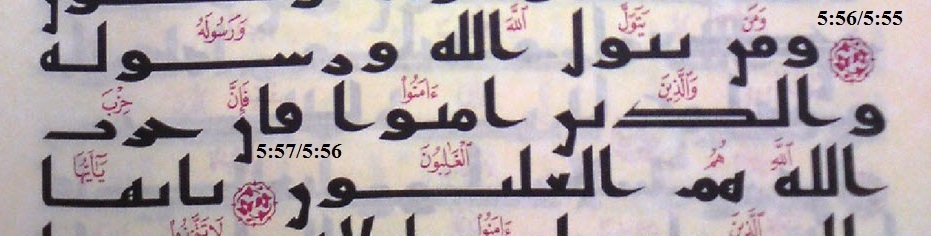 5:56/5:55
وَمَن يَتَوَلَّ ٱللَّهَ وَرَسُولَهُ
ومن يتول الله ورسوله
وَٱلَّذِينَ ءَامَنُوا۟ فَإِنَّ حِزْبَ
والذين امنوا فان حزب
5:57/5:56
ٱللَّهِ هُمُ ٱلْغَٰلِبُونَ يَٰٓأَيُّهَا
الله هم الغلبون يايها
ٱلَّذِينَ ءَامَنُوا۟ لَا تَتَّخِذُوا۟